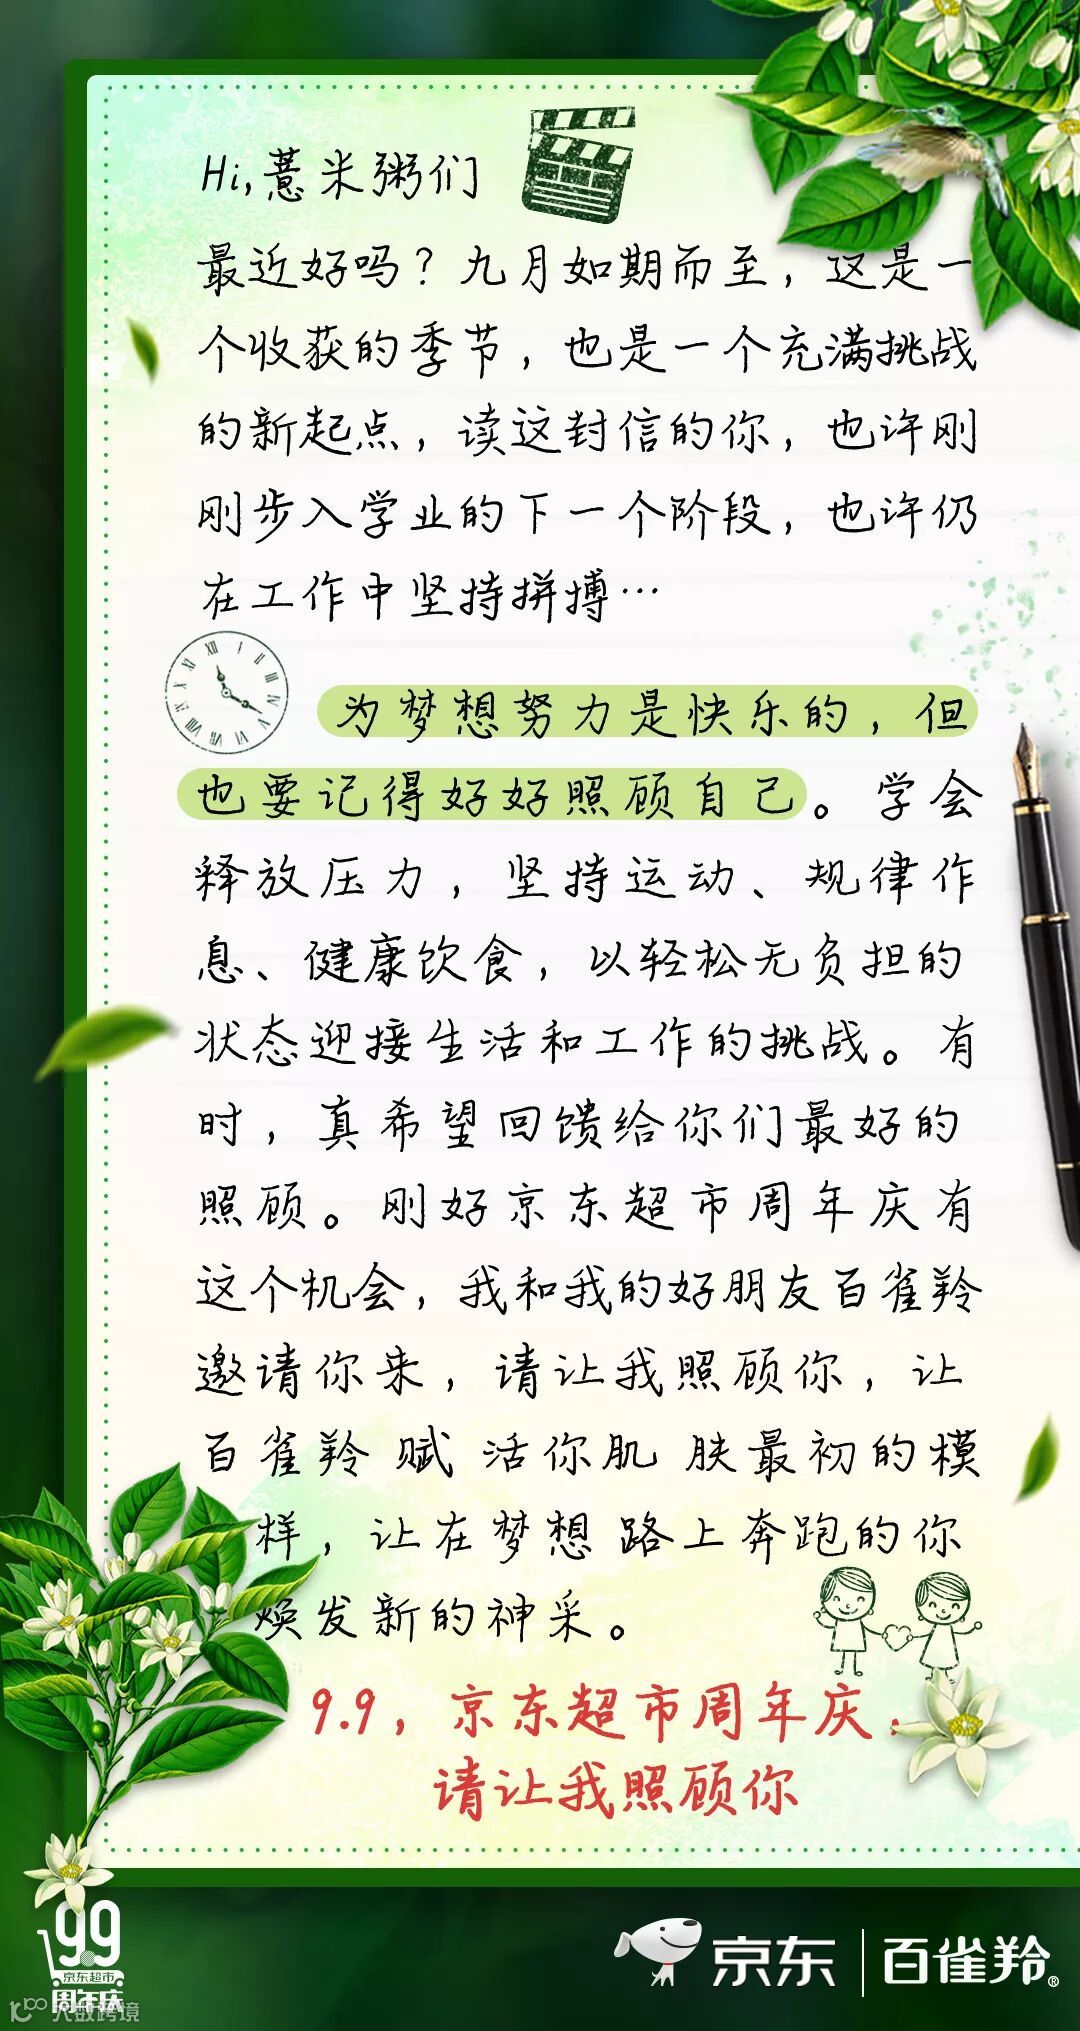 Hi,薏米粥们
最近好吗？九月如期而至，这是一
个收获的季节，也是一个充满挑战
的新起点，读这封信的你，也许刚
刚步入学业的下一个阶段，也许仍
在工作中坚持拼搏…
为梦想努力是快乐的，但
也要记得好好照顾自己。学会
释放压力，坚持运动、规律作
息、健康饮食，以轻松无负担的
状态迎接生活和工作的挑战。有
时，真希望回馈给你们最好的
照顾。刚好京东超市周年庆有
这个机会，我和我的好朋友百雀羚
邀请你来，请让我照顾你，让
百雀羚 赋 活你肌 肤最初的模
样，让在梦想 路上奔跑的你
焕发新的神采。
9.9，京东超市周年庆，
请让我照顾你
99
京东超市
周年庆
大数跨境
京东 百雀羚®
XII I II III IV V VI VII VIII IX X XI